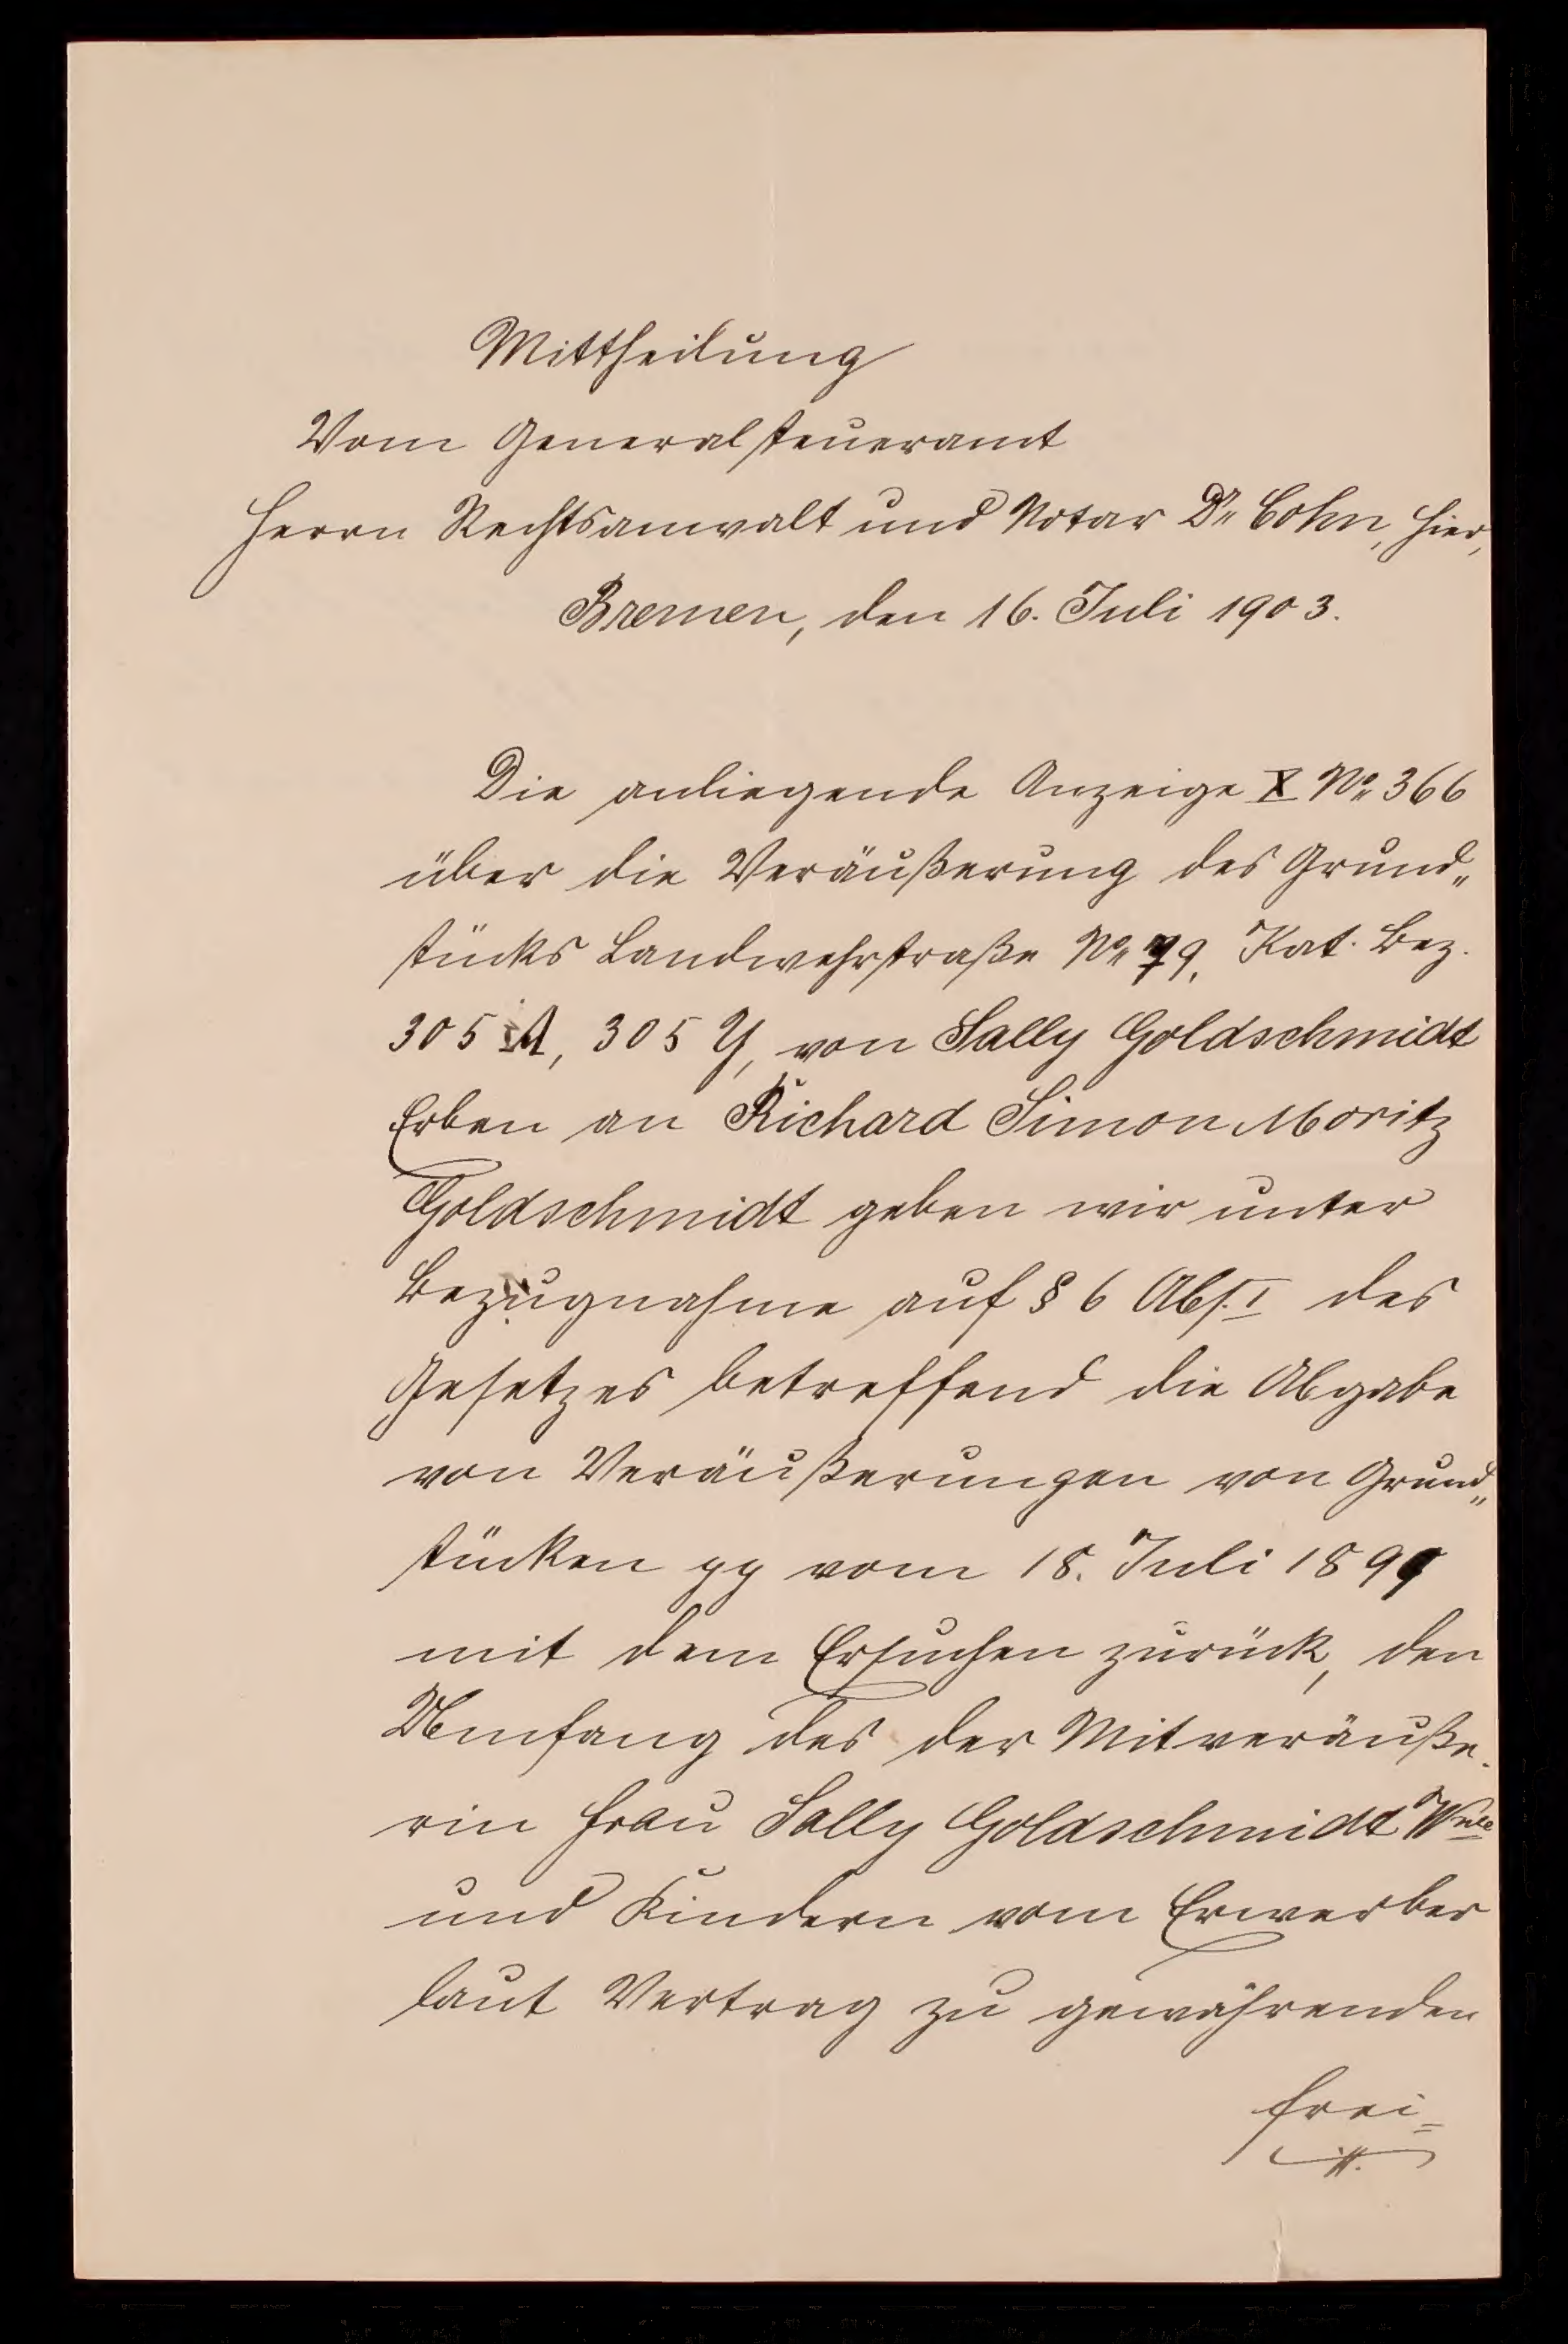 Mittheilung
Vom Generalsteueramt
Herrn Rechtsanwalt und Notar Dr. Cohn, hier,
Bremen, den 16. Juli 1903.
Die anliegende Anzeige X No. 366
über die Veräußerung des Grund„
stücks Landwehrstraße No. 79, Kat. Bez.
305 A, 305 Y, von Sally Goldschmidt
Erben an Richard Simon Moritz
Goldschmidt geben wir unter
Bezugnahme auf § 6 Abs. I des
Gesetzes betreffend die Abgabe
von Veräußerungen von Grund„
stücken pp vom 18. Juli 1899
mit dem Ersuchen zurück, den
Umfang des der Mitveräuße-
rin Frau Sally Goldschmidt Wwe
und Kindern vom Erwerber
laut Vertrag zu gewährenden
frei=